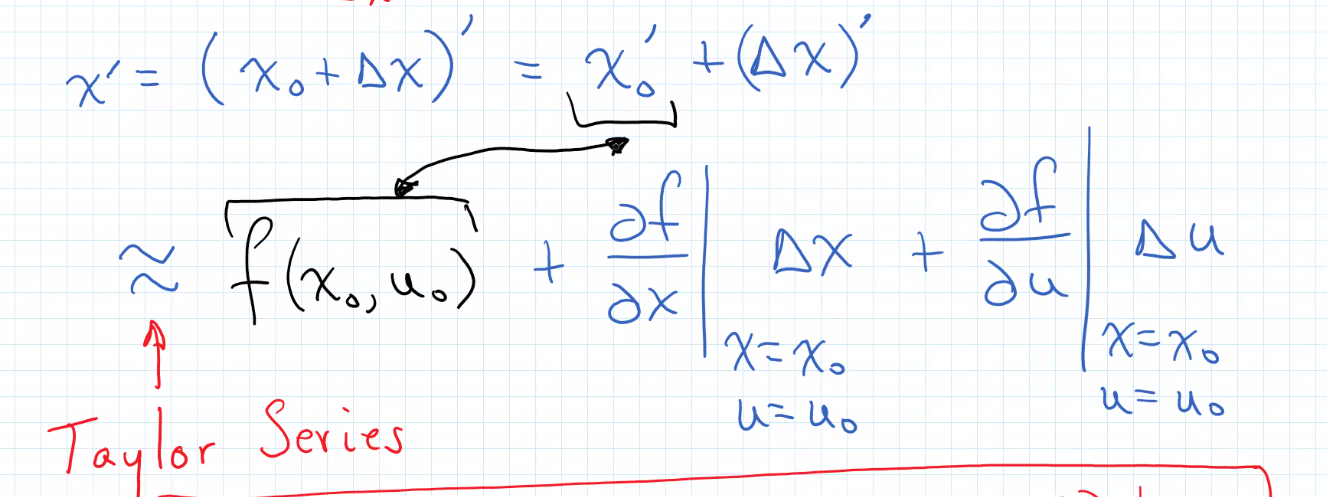 x' = (x₀ + Δx)' = x₀' + (Δx)'
≈ f(x₀, u₀) + ∂f/∂x | x=x₀ u=u₀ Δx + ∂f/∂u | x=x₀ u=u₀ Δu
Taylor Series